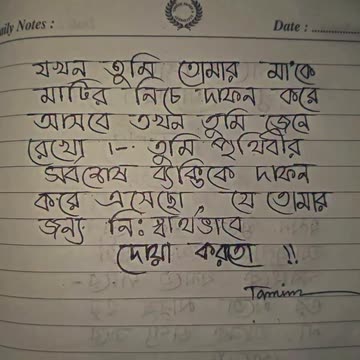 aily Notes :
Date :
যখন তুমি তোমার মা'কে
মাটির নিচে দাফন করে
আসবে তখন তুমি জেনে
রেখো ।- তুমি পৃথিবীর
সবশেষ ব্যক্তিকে দাফন
করে এসেছো, যে তোমার
জন্য নিঃস্বার্থভাবে
দোয়া করতো !!
Tamim